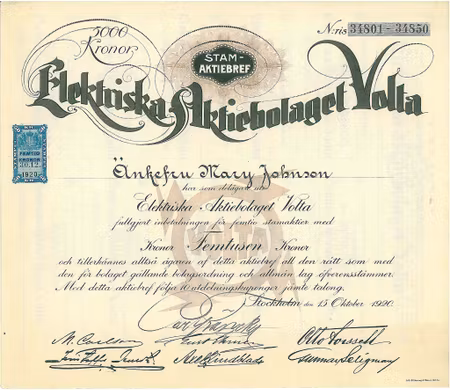 5000
Kronor
N:ris 34801 - 34850
STAM-
AKTIEBREF
Elektriska Aktiebolaget Volta
FEMTIO
KRONOR
1920
Änkefru Mary Johnson
har som delägare uti
Elektriska Aktiebolaget Volta
fullgjort inbetalningen för femtio stamaktier med
Kronor Femtusen Kronor
och tillerkännes alltså ägaren af detta aktiebref all den rätt som med
den för bolaget gällande bolagsordning och allmän lag öfverensstämmer.
Med detta aktiebref följa 10 utdelningskuponger jämte talong.
Stockholm den 15 Oktober 1920.
M. Carlson
Otto
Gunnar Seligman